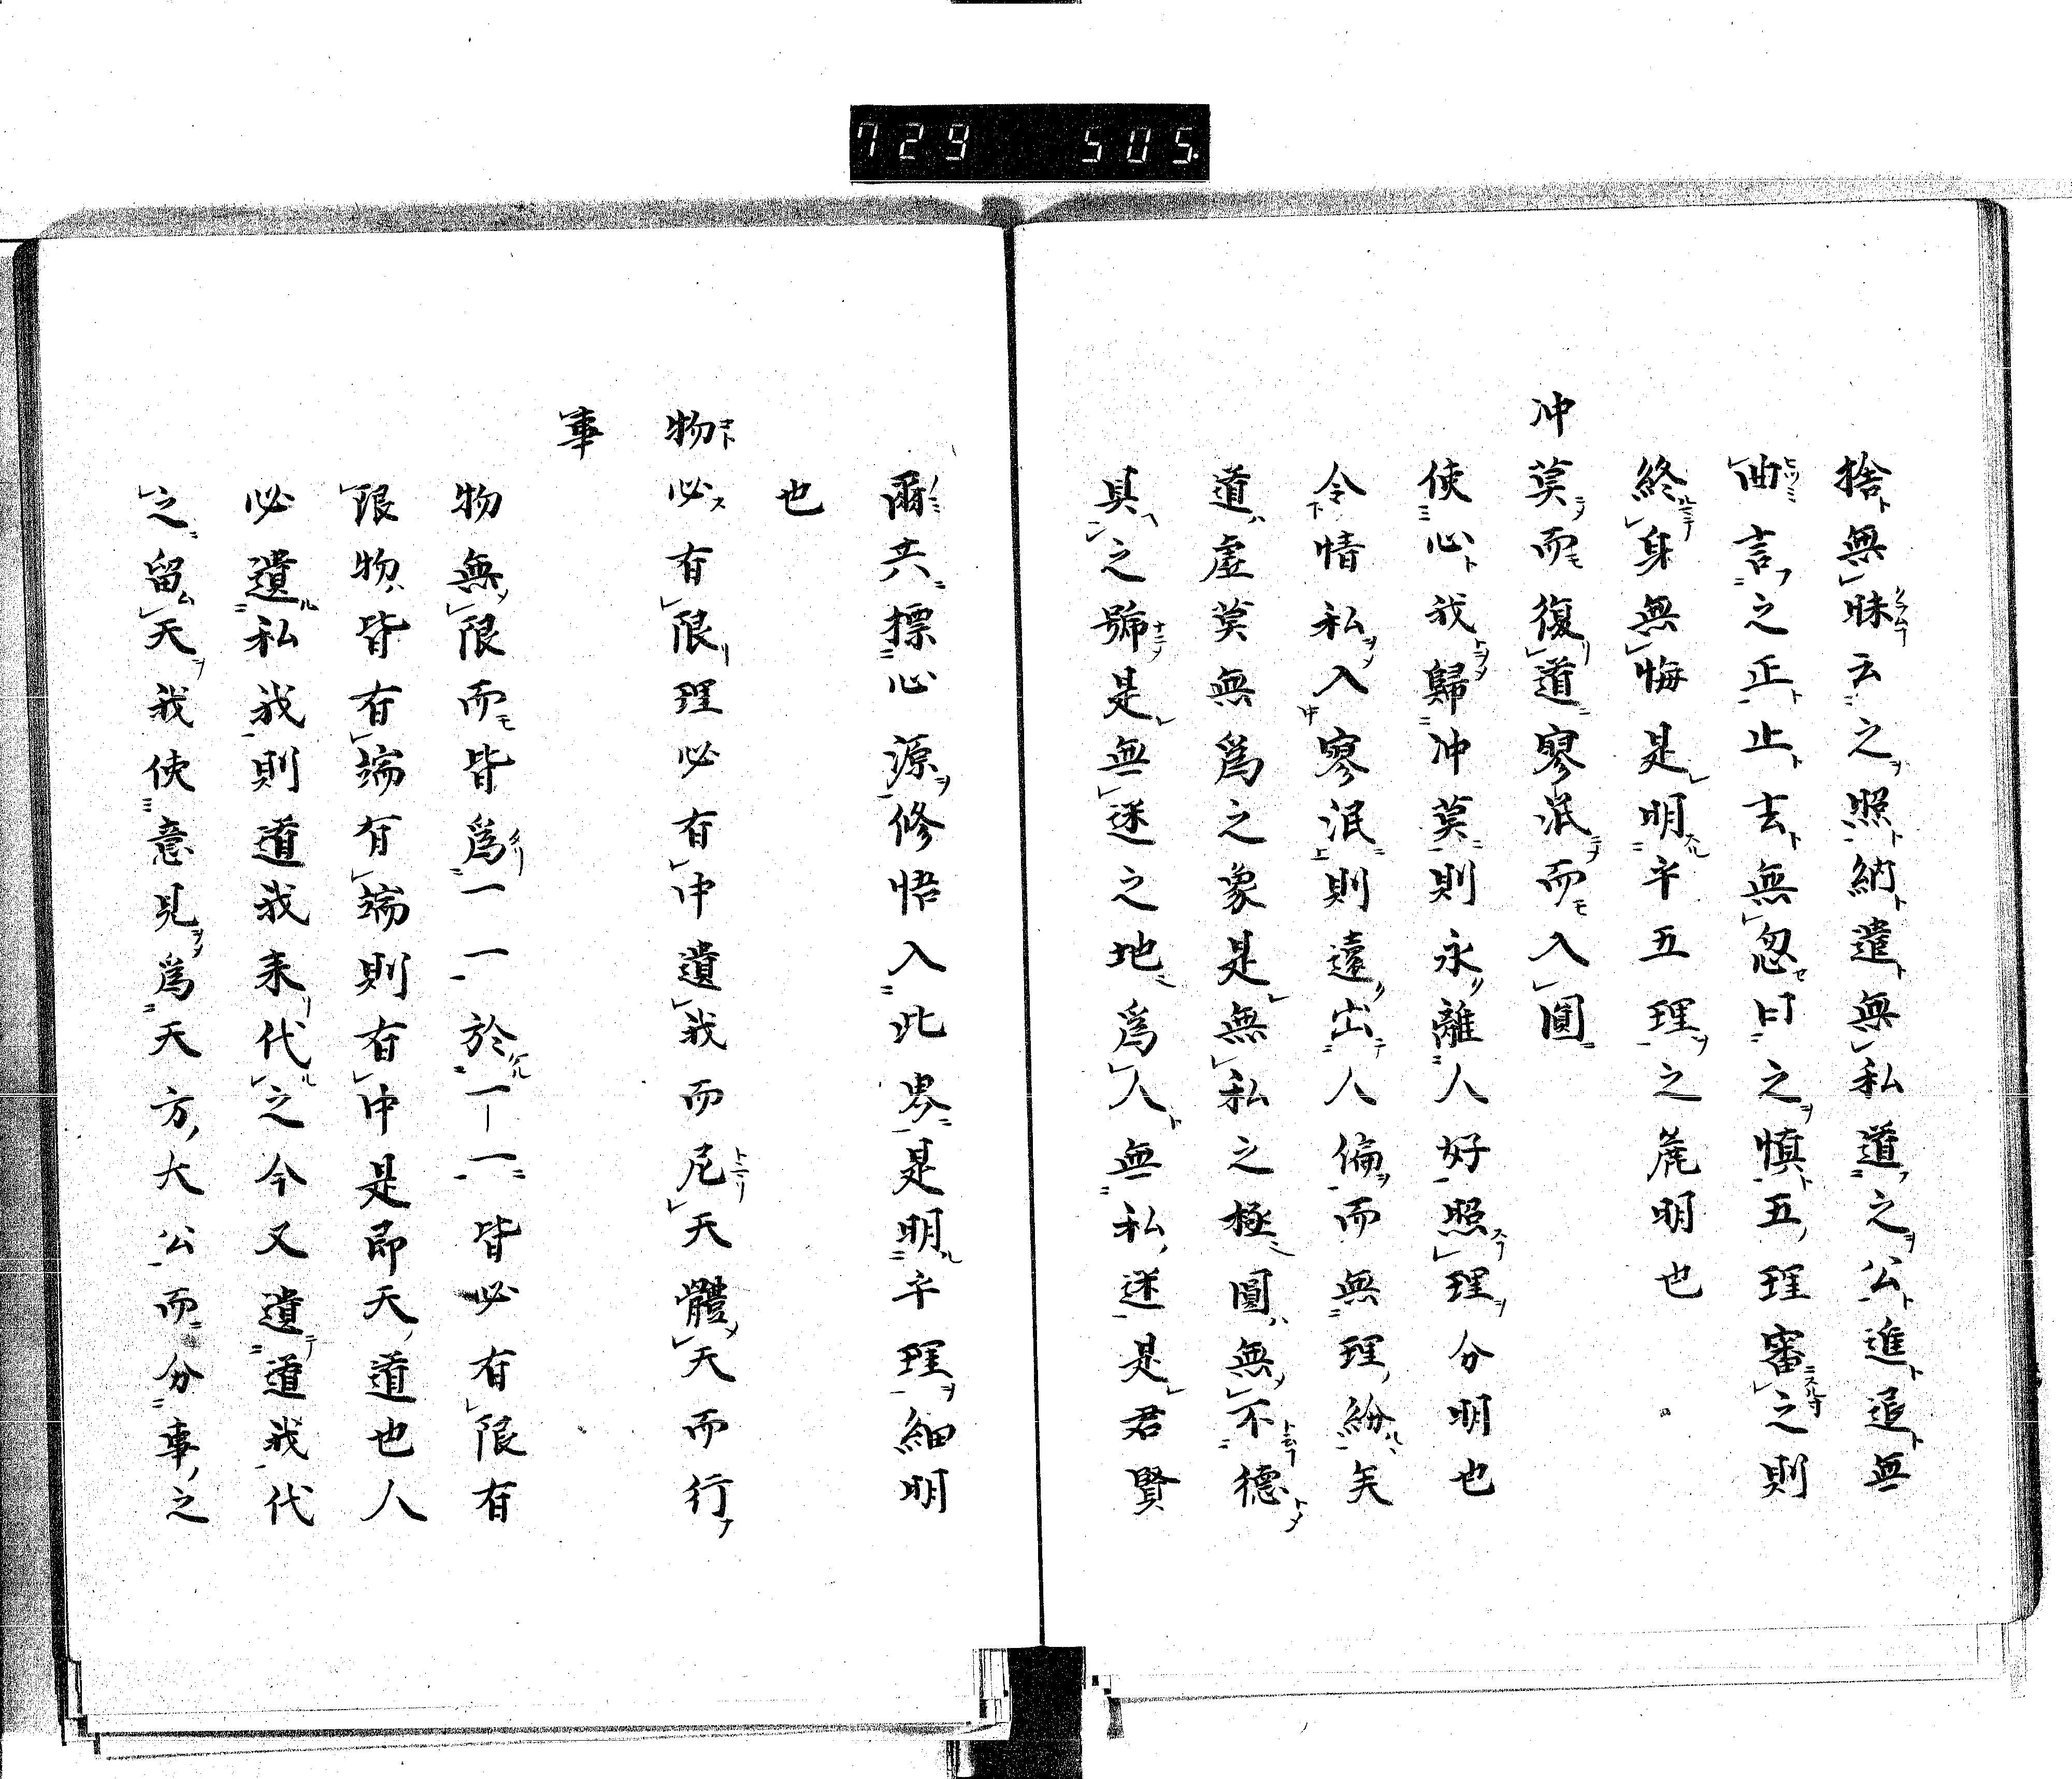 729 505
捨無昧云之照納遣無私道之公進退無
曲言之正止去無忽曰之慎五理審之則
終身無悔是明乎五理之麁明也
冲莫而復道寥泯而入圓
使心我歸冲莫則永離人好照理分明也
令情私入寥泯則遠出人偏而無理紛矣
道虛莫無爲之象是無私之極圓無不德
具之號是無迷之地爲人無私迷是君賢
爾共標心源修悟入此界是明乎理細明
也
物必有限理必有中遺我而尼天體天而行
事
物無限而皆爲一一於一一皆必有限有
限物皆有端有端則有中是即天道也人
必遺私我則道我来代之今又遺道我代
之留天我使意見爲天方大公而分事之